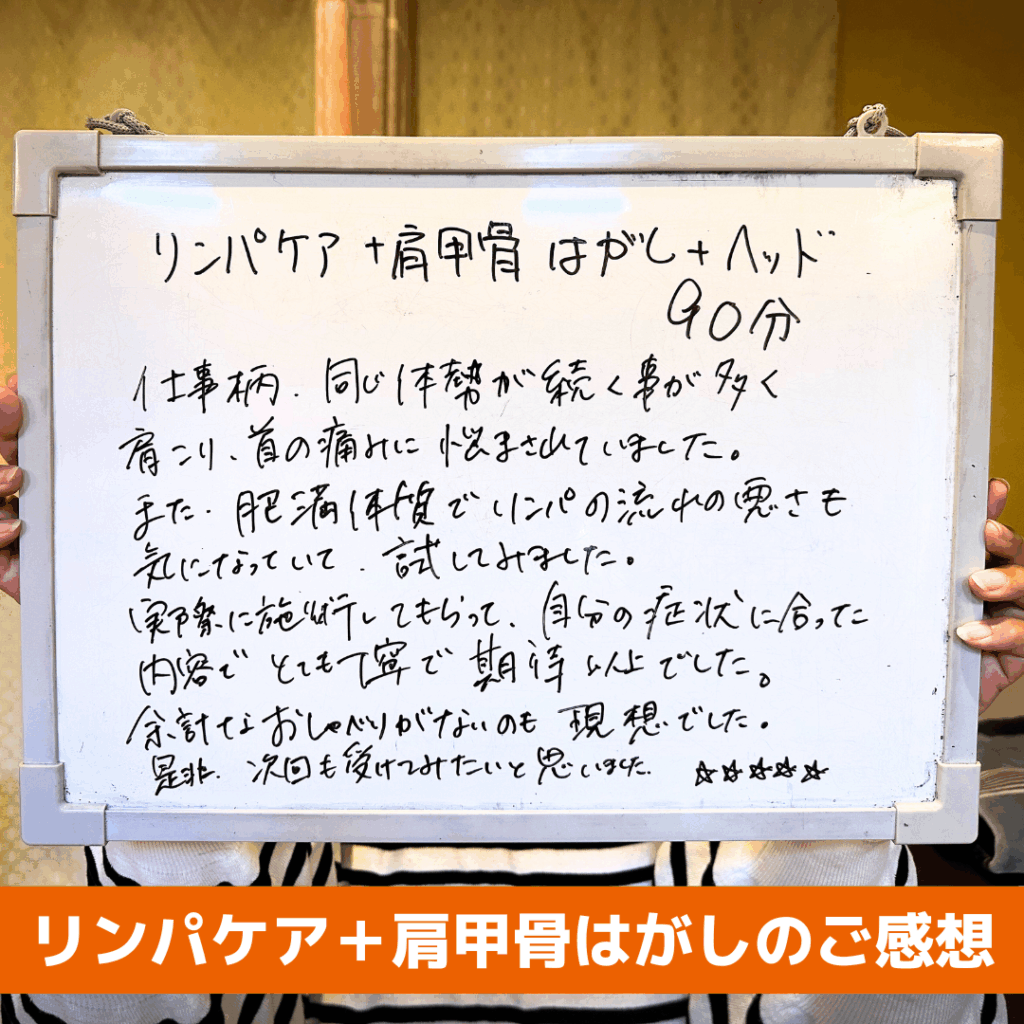 リンパケア+肩甲骨はがし+ヘッド
90分
仕事柄、同じ体勢が続く事が多く
肩こり、首の痛みに悩まされていました。
また、肥満体質でリンパの流れの悪さも
気になっていて、試してみました。
実際に施術してもらって、自分の症状に合った
内容でとても丁寧で期待以上でした。
余計なおしゃべりがないのも理想でした。
是非、次回も受けてみたいと思いました。☆☆☆☆☆
リンパケア+肩甲骨はがしのご感想